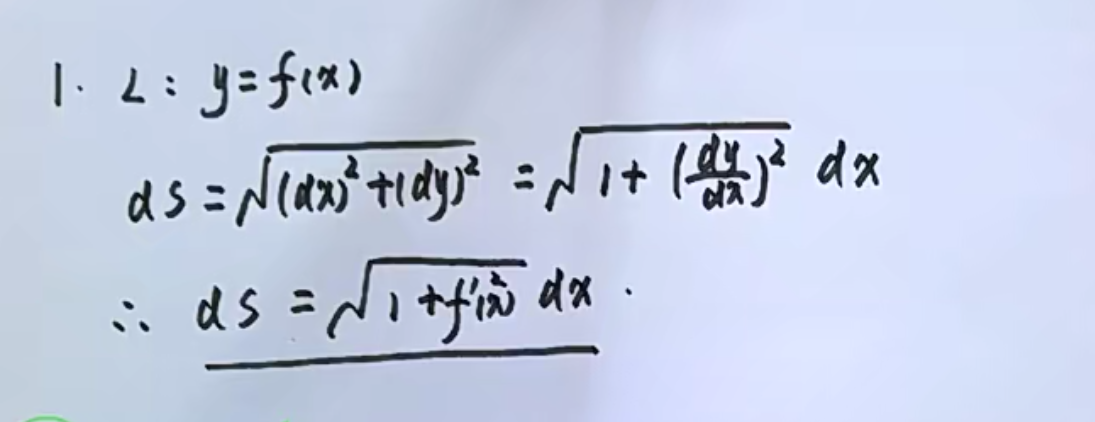 1. L: y=f(x)
ds=√((dx)²+(dy)²) =√(1+(dy/dx)²) dx
∴ ds=√(1+f'²(x)) dx.